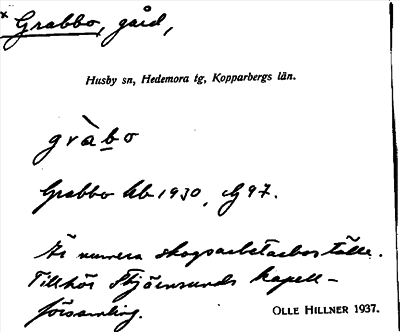 × Grabbo, gård,
Husby sn, Hedemora tg, Kopparbergs län.
gràbo
Grabbo kb 1930,
Är numera skogsarbetarboställe.
Tillhör Stjärnsunds kapell-
församling.
OLLE HILLNER 1937.